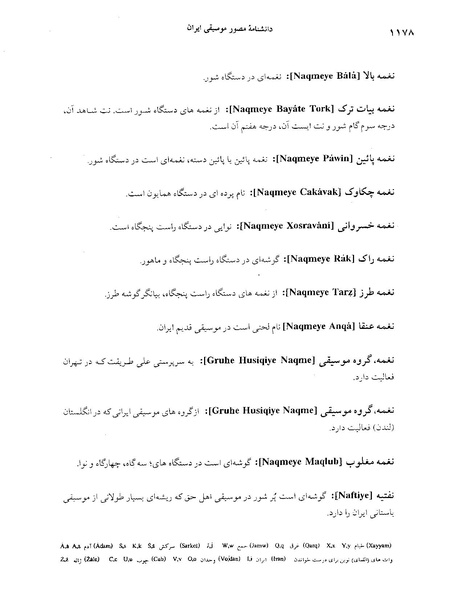 دانشنامهٔ مصور موسیقی ایران
۱۱۷۸
نغمه بالا [Naqmeye Bâlâ]: نغمه‌ای در دستگاه شور.
نغمه بیات ترک [Naqmeye Bayâte Tork]: از نغمه های دستگاه شور است. نت شاهد آن،
درجه سوم گام شور و نت ایست آن، درجه هفتم آن است.
نغمه پائین [Naqmeye Páwin]: نغمه پائین یا پائین دسته، نغمه‌ای است در دستگاه شور.
نغمه چکاوک [Naqmeye Cakávak]: نام پرده ای در دستگاه همایون است.
نغمه خسروانی [Naqmeye Xosraváni]: نوایی در دستگاه راست پنجگاه است.
نغمه راک [Naqmeye Rák]: گوشه‌ای در دستگاه راست پنجگاه و ماهور.
نغمه طرز [Naqmeye Tarz]: از نغمه های دستگاه راست پنجگاه، بیانگر گوشه طرز.
نغمه عنقا [Naqmeye Anqâ] نام لحنی است در موسیقی قدیم ایران.
نغمه،گروه موسیقی [Gruhe Husiqiye Naqme]: به سرپرستی علی طریقت که در تهران
فعالیت دارد.
نغمه،گروه موسیقی [Gruhe Husiqiye Naqme]: ازگروه های موسیقی ایرانی که در انگلستان
(لندن) فعالیت دارد.
نغمه مغلوب [Naqmeye Maqlub]: گوشه‌ای است در دستگاه های؛ سه گاه، چهارگاه و نوا.
نفتیه [Naftiye]: گوشه‌ای است پُر شور در موسیقی اهل حق که ریشه‌ای بسیار طولانی از موسیقی
باستانی ایران را دارد.
(Xayyam) خیام X,x V,y (Qarq) غرق Q,q (Jamw) جمع W,w (Sarkeš) سرکش Š,š K,k S,s (Ádam) آدم A,a Á,á
وات های (الفبای) نوین برای درست خواندن (Irán) ایران I,i (Vojdán) وجدان O,o V,v (Cub) چوب U,u C,c (Zâla) ژاله Z,z